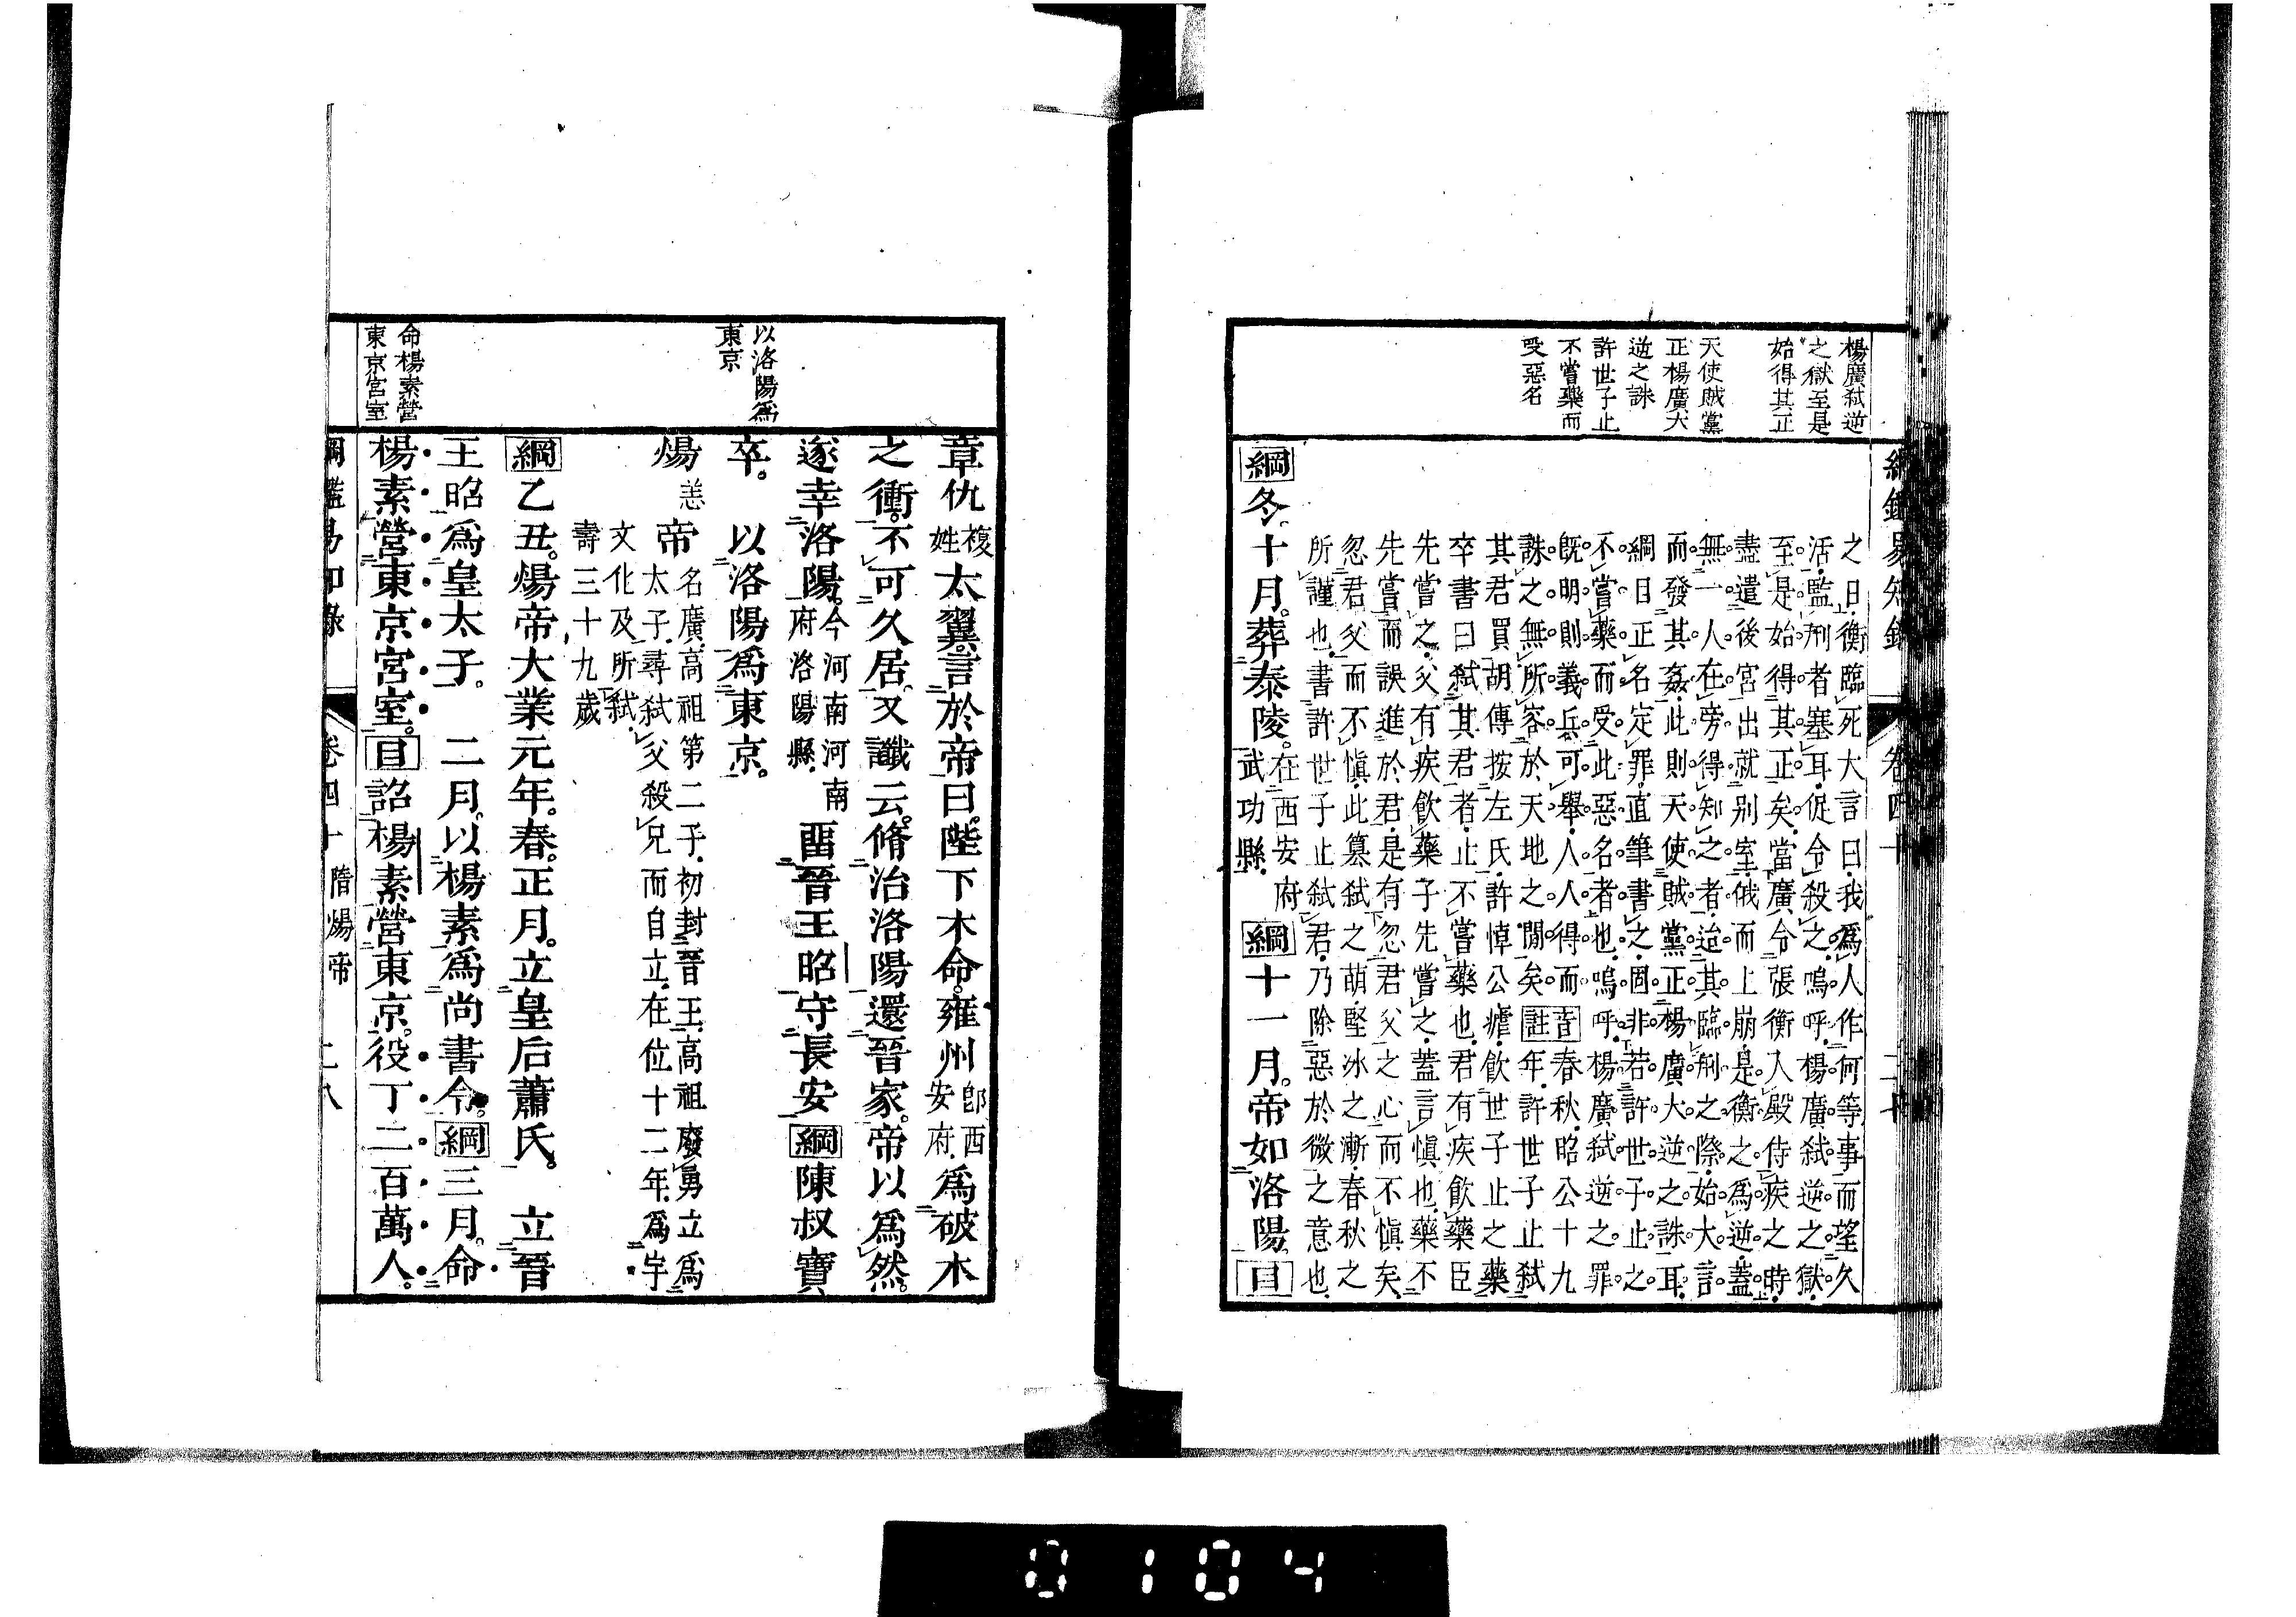 楊廣弒逆
之獄至是
始得其正
天使賊黨
正楊廣大
逆之誅
許世子止
不嘗藥而
受惡名
之日衡臨死大言曰我爲人作何等事而望久
活監刑者塞耳促令殺之嗚呼楊廣弒逆之獄
至是始得其正矣當廣令張衡入殿侍疾之時
盡遣後宮出就别室俄而上崩是衡之爲逆蓋
無一人在旁得知之者迨其臨刑之際始大言
而發其姦此則天使賊黨正楊廣大逆之誅耳
綱目正名定罪直筆書之固非若許世子止之
不嘗藥而受此惡名者也嗚呼楊廣弒逆之罪
旣明則義兵可舉人人得而音春秋昭公十九
誅之無所容於天地之閒矣註年許世子止弒
其君買胡傳按左氏許悼公瘧飲世子止之藥
卒書曰弒其君者止不嘗藥也君有疾飲藥臣
先嘗之父有疾飲藥子先嘗之蓋言愼也藥不
先嘗而誤進於君是有忽君父之心而不愼矣
忽君父而不愼此篡弒之萌堅冰之漸春秋之
所謹也書許世子止弒君乃除惡於微之意也
綱冬十月葬泰陵在西安府武功縣綱十一月帝如洛陽目
以洛陽爲
東京
命楊素營
東京宮室
章仇複姓太翼言於帝曰陛下木命雍州卽西安府爲破木
之衝不可久居又讖云脩治洛陽還晉家帝以爲然
遂幸洛陽今河南河南府洛陽縣畱晉王昭守長安綱陳叔寶
卒以洛陽爲東京
煬恙帝名廣高祖第二子初封晉王高祖廢勇立爲
太子尋弒父殺兄而自立在位十二年爲宇
文化及所弒
壽三十九歲
綱乙丑煬帝大業元年春正月立皇后蕭氏立晉
王昭爲皇太子二月以楊素爲尚書令綱三月命
楊素營東京宮室目詔楊素營東京役丁二百萬人
卷四十 隋煬帝